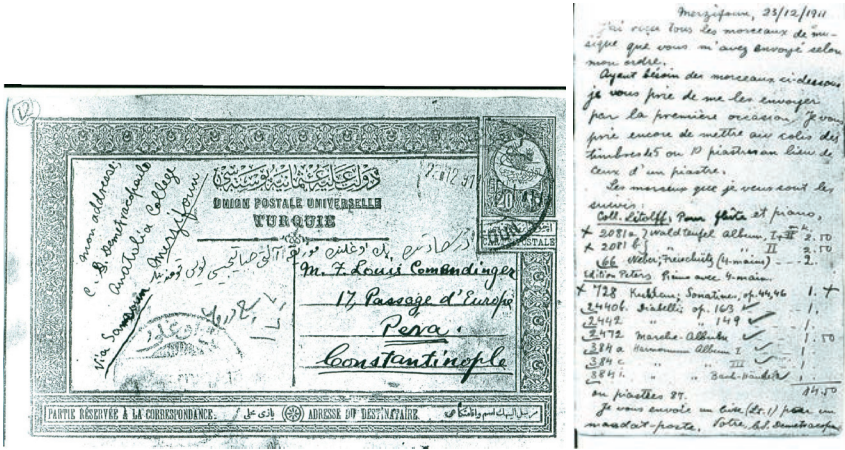 mon address;
C. D. Demetracopulo
Anatolia College
Merzifoun
via Samsoun
دولت عليه عثمانيه پوسته سى
UNION POSTALE UNIVERSELLE
TURQUIE
20
M. F. Louis Comendinger
17, Passage d'Europe
Pera.
Constantinople
PARTIE RÉSERVÉE À LA CORRESPONDANCE.
ADRESSE DU DESTINATAIRE.
Merzifoun, 23/12/1911
J'ai reçu tous les morceaux de mu-
sique que vous m'avez envoyé selon
mon ordre.
Ayant bésoin des morceaux ci-dessous
je vous prie de me les envoyer
par la première occasion. Je vous
prie encore de mettre au colis des
timbres de 5 ou 10 piastres au lieu de
ceux d'un piastre.
Les morceaux que je veux sont les
suivis:
Coll. Litolff; Pour flûte et piano,
× 2081a } Waldteufel Album, I 2.50
× 2081b } " II 2.50
66 Weber, Freischütz (4-mains) 2.
Edition Peters. Piano avec 4-main
× 728 Kuhlau; Sonatinen, op. 44,46 1. +
2440b. Diabelli op. 163 1.
2442 " " 149 1.
2472 Marsche-Album 1.50
384 a Harmonium Album I 1.
384 c " " III 1.
384 i. " " Bach-Händel 1.
14.50
ou piastres 87.
Je vous envoie un livre (Lt. 1) par un
mandat-poste. Votre, C. D. Demetracopulo